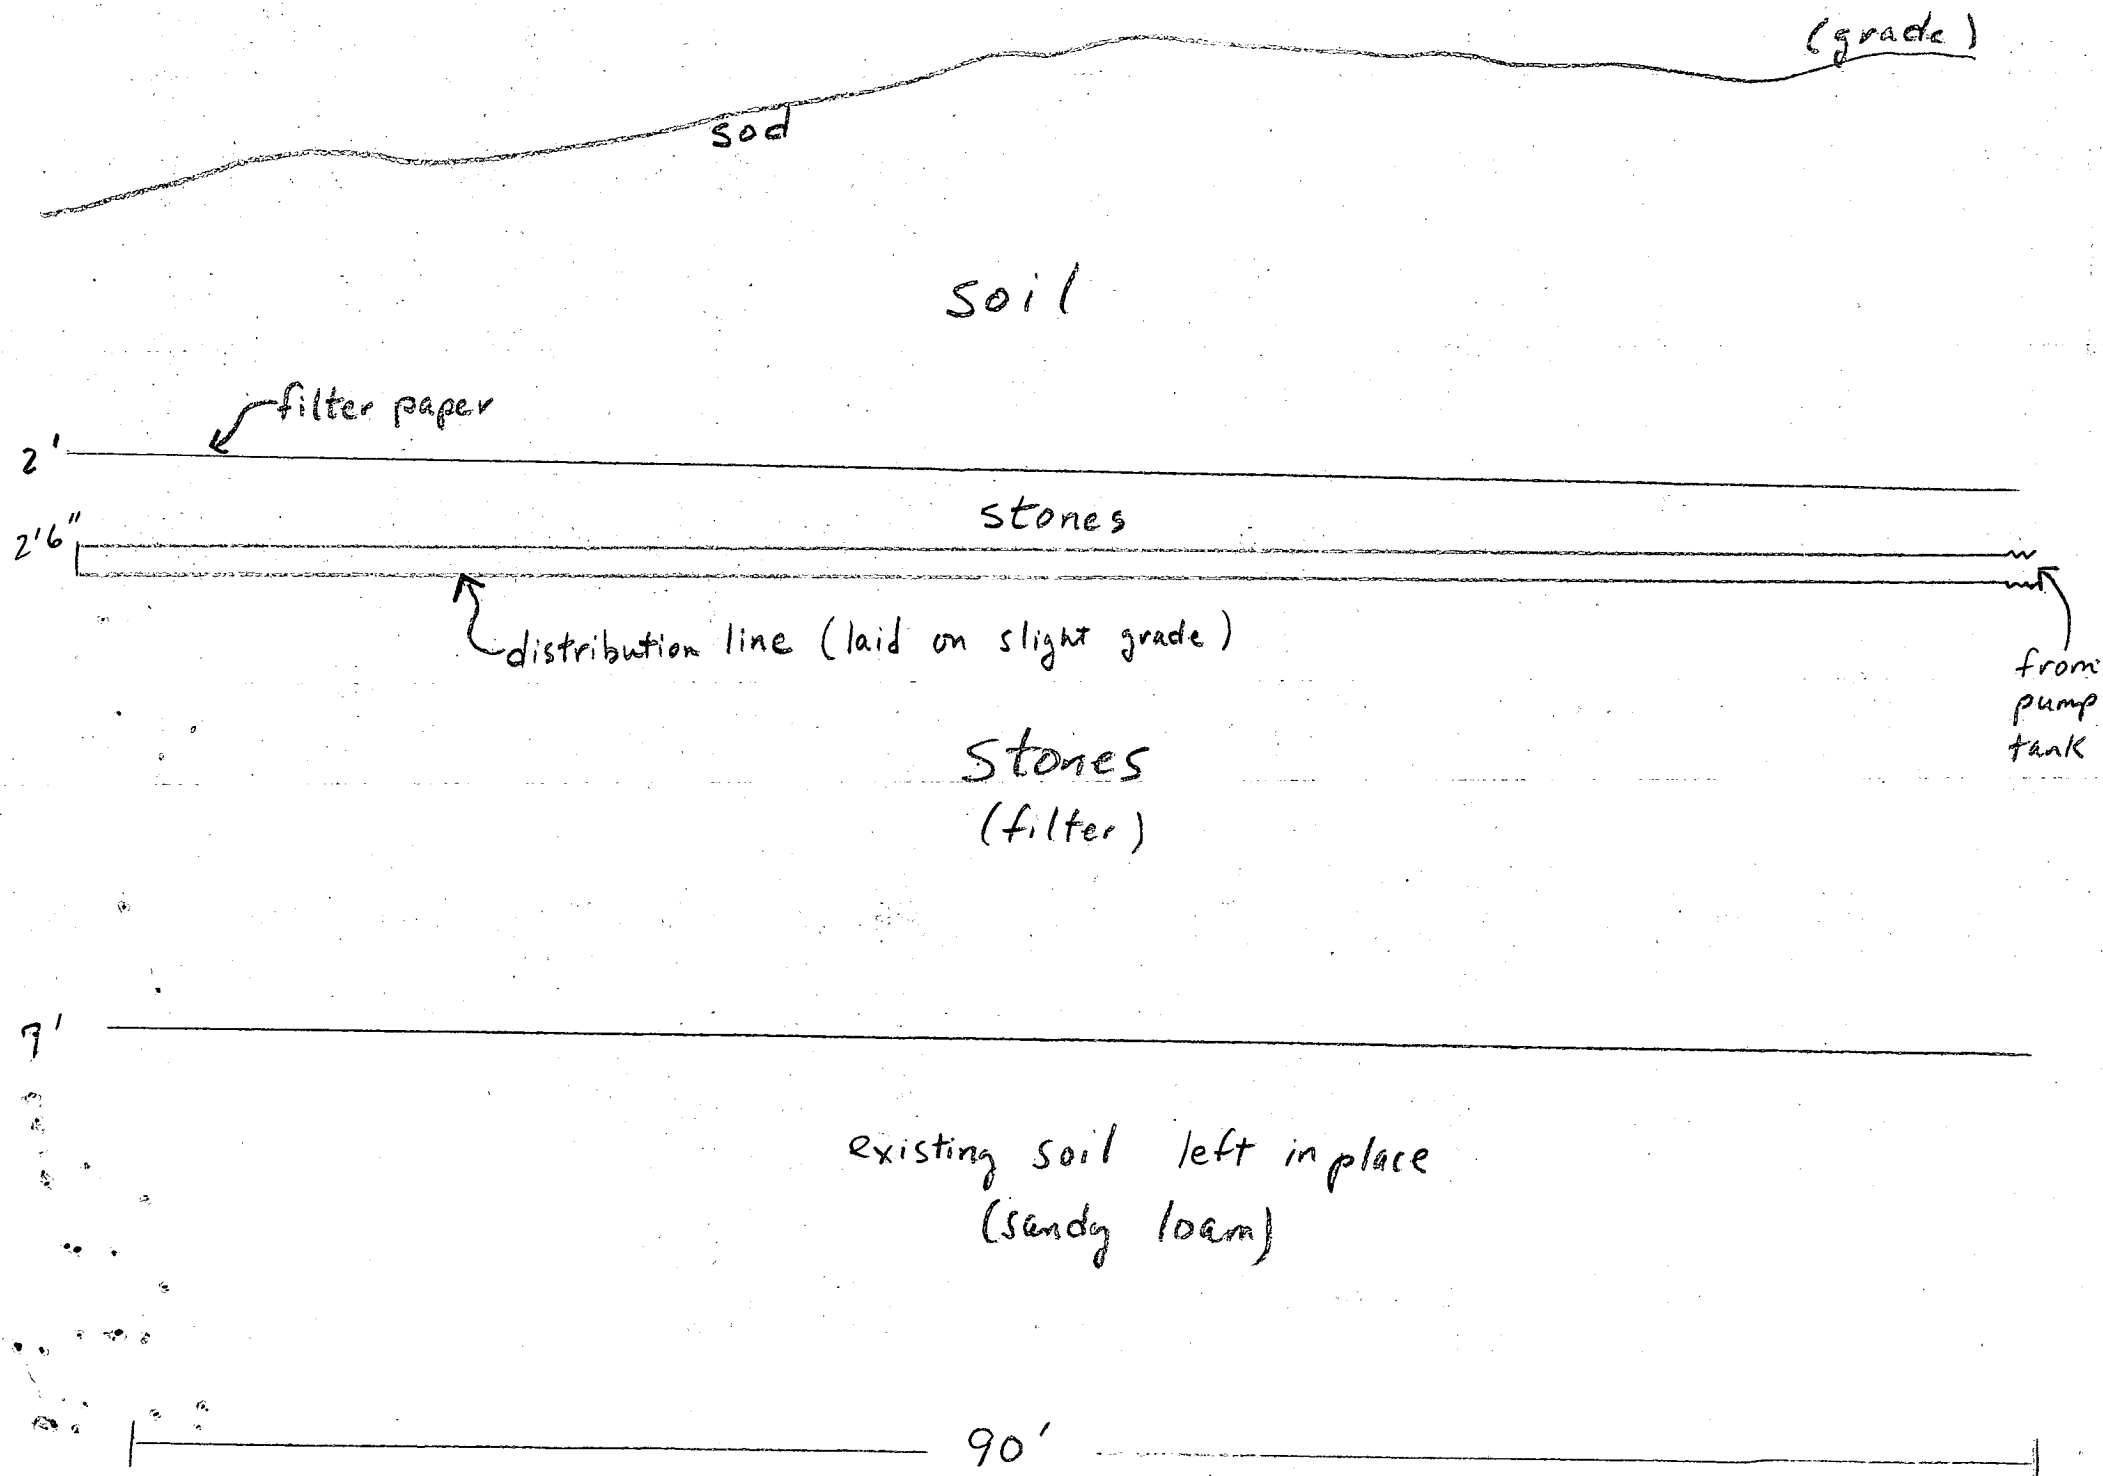 (grade)
sod
soil
filter paper
2'
stones
2'6"
distribution line (laid on slight grade)
from
pump
tank
Stones
(filter)
7'
existing soil left in place
(sandy loam)
90'